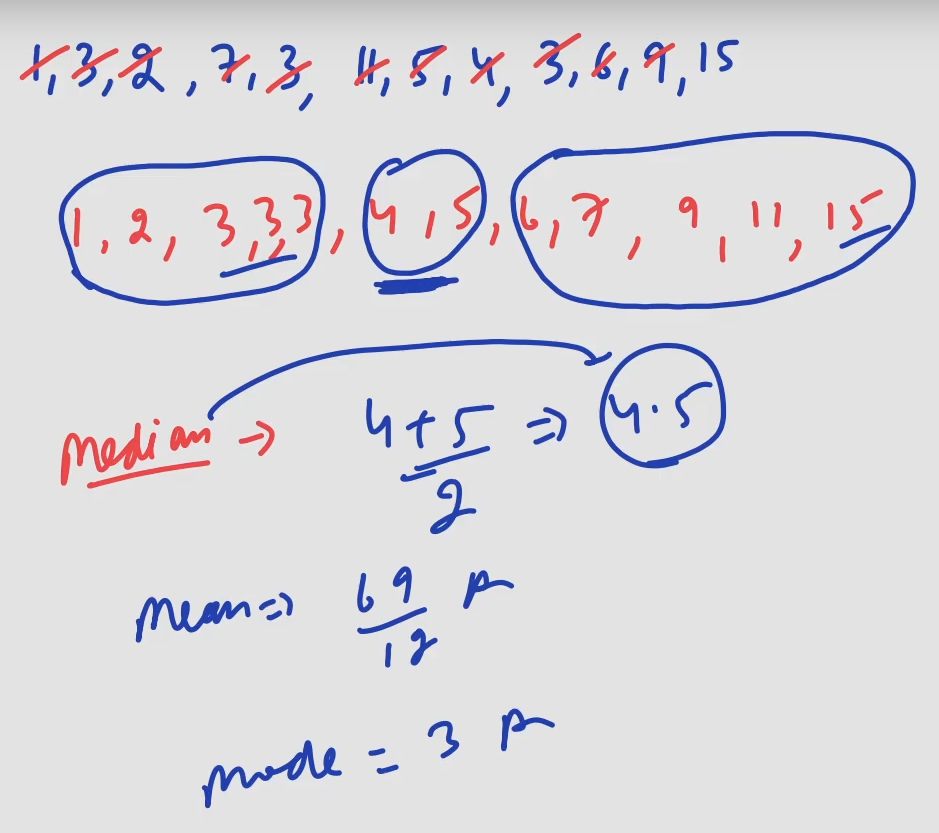 1, 3, 2, 7, 3, 11, 5, 4, 3, 6, 9, 15
1, 2, 3, 3, 3, 4, 5, 6, 7, 9, 11, 15
Median → 4+5/2 ⇒ 4.5
Mean ⇒ 69/12
mode = 3